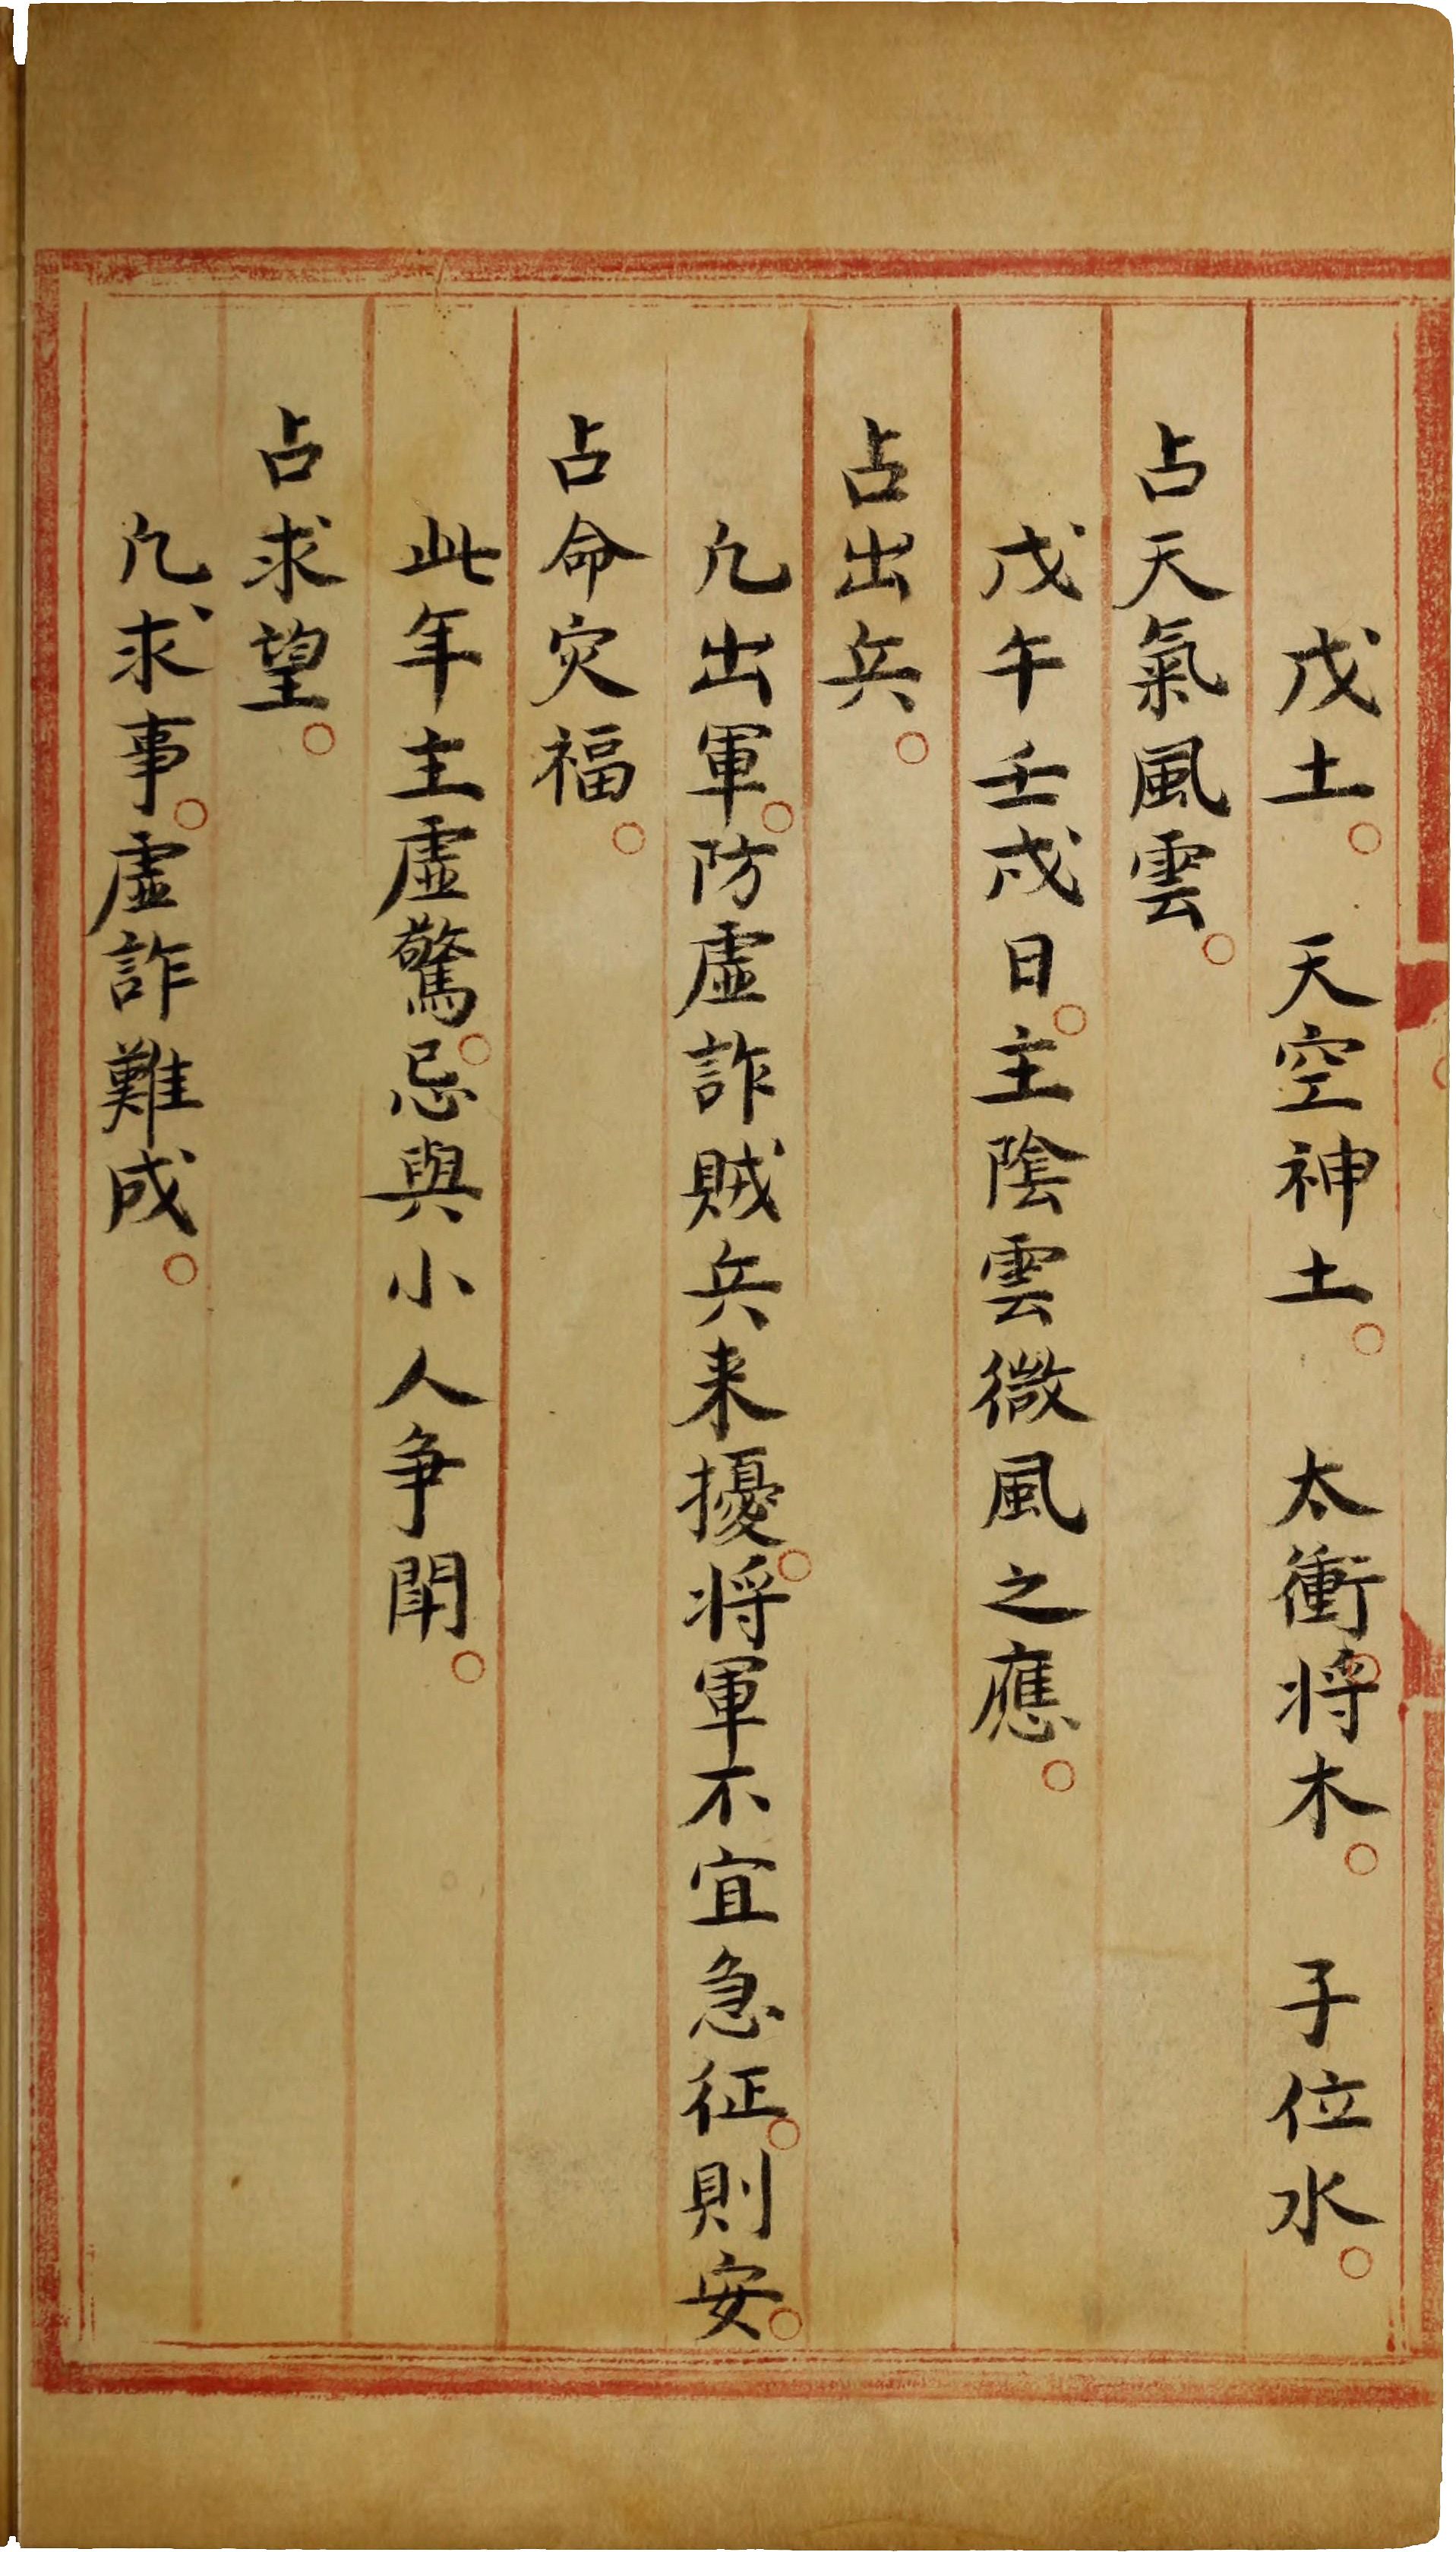 戊土。天空神土。太衝將木。子位水。
占天氣風雲。
戊午壬戌日。主陰雲微風之應。
占出兵。
凢出軍。防虛詐賊兵来擾。將軍不宜急征。則安。
占命灾福。
此年主虛驚。忌與小人争閗。
占求望。
凢求事。虛詐難成。